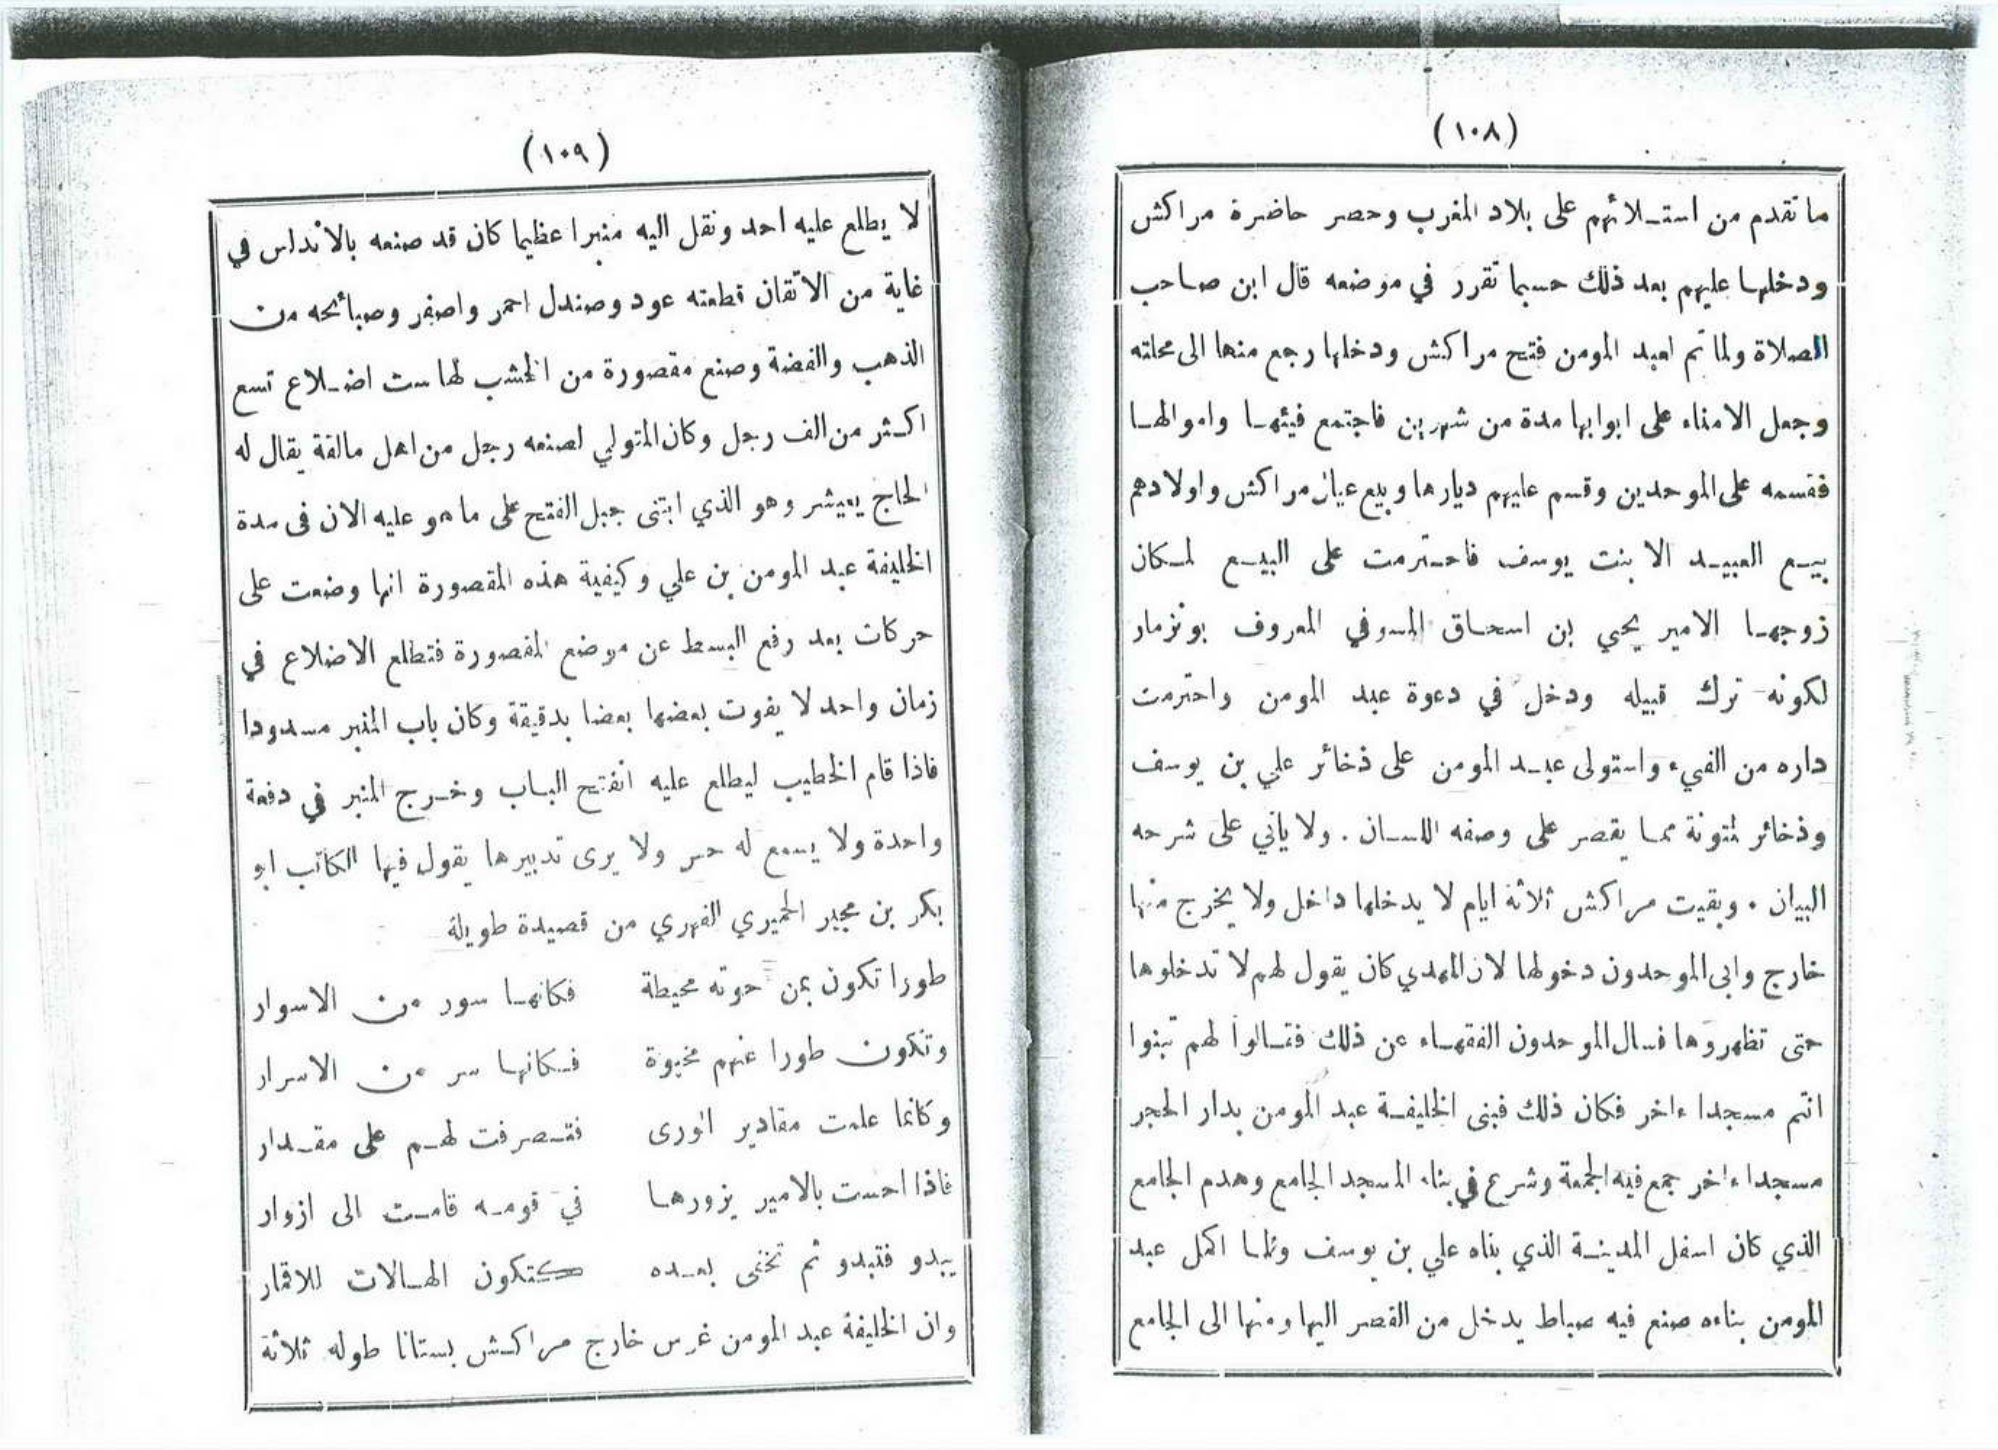 (١٠٨)
ما تقدم من استلائهم على بلاد المغرب وحصر حاضرة مراكش
ودخلها عليهم بعد ذلك حسبما تقرر في موضعه قال ابن صاحب
الصلاة ولما تم لعبد المومن فتح مراكش ودخلها رجع منها الى محلته
وجعل الامناء على ابوابها مدة من شهرين فاجتمع فيئها واموالها
فقسمه على الموحدين وقسم عليهم ديارها وبيع عيال مراكش واولادهم
بيع العبيد الا بنت يوسف فاحترمت على البيع لمكان
زوجها الامير يحيي بن اسحاق المسوفي المعروف بونزمار
لكونه ترك قبيله ودخل في دعوة عبد المومن واحترمت
داره من الفيء واستولى عبد المومن على ذخائر علي بن يوسف
وذخائر لمتونة مما يقصر على وصفه اللسان . ولا ياتي على شرحه
البيان . وبقيت مراكش ثلاثة ايام لا يدخلها داخل ولا يخرج منها
خارج وابى الموحدون دخولها لان المهدي كان يقول لهم لا تدخلوها
حتى تظهروها فسال الموحدون الفقهاء عن ذلك فقالوا لهم تبنوا
انتم مسجدا ءاخر فكان ذلك فبنى الخليفة عبد المومن بدار الحجر
مسجدا ءاخر جمع فيه الجمعة وشرع في بناء المسجد الجامع وهدم الجامع
الذي كان اسفل المدينة الذي بناه علي بن يوسف ولما اكمل عبد
المومن بناءه صنع فيه صباط يدخل من القصر اليها ومنها الى الجامع
(١٠٩)
لا يطلع عليه احد ونقل اليه منبرا عظيما كان قد صنعه بالاندلس في
غاية من الاتقان قطعته عود وصندل احمر واصفر وصبائحه من
الذهب والفضة وصنع مقصورة من الخشب لها ست اضلاع تسع
اكثر من الف رجل وكان المتولي لصنعه رجل من اهل مالقة يقال له
الحاج يعيشر وهو الذي ابتنى جبل الفتح على ما هو عليه الان فى مدة
الخليفة عبد المومن بن علي وكيفية هذه المقصورة انها وضعت على
حركات بعد رفع البسط عن موضع المقصورة فتطلع الاضلاع في
زمان واحد لا يفوت بعضها بعضا بدقيقة وكان باب المنبر مسدودا
فاذا قام الخطيب ليطلع عليه انفتح الباب وخرج المنبر في دفعة
واحدة ولا يسمع له حس ولا يرى تدبيرها يقول فيها الكاتب ابو
بكر بن مجبر الحميري الفهري من قصيدة طويلة
طورا تكون بمن حوته محيطة فكانها سور من الاسوار
وتكون طورا عنهم مخبوة فكانها سر من الاسرار
وكانما علمت مقادير الورى فتصرفت لهم على مقدار
فاذا احست بالامير يزورها في قومه قامت الى ازوار
يبدو فتبدو ثم تخفى بعده كتكون الهالات للاقمار
وان الخليفة عبد المومن غرس خارج مراكش بستانا طوله ثلاثة